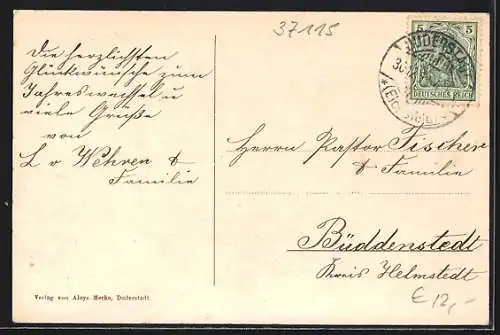 37115
Die herzlichsten
Glückwünsche zum
Jahreswechsel u
viele Grüße
von
L v Wehren &
Familie
5 5
DEUTSCHES REICH
Herrn Pastor Fischer
& Familie
Büddenstedt
Kreis Helmstedt
Verlag von Aloys Merke, Duderstadt.
€ 12,-